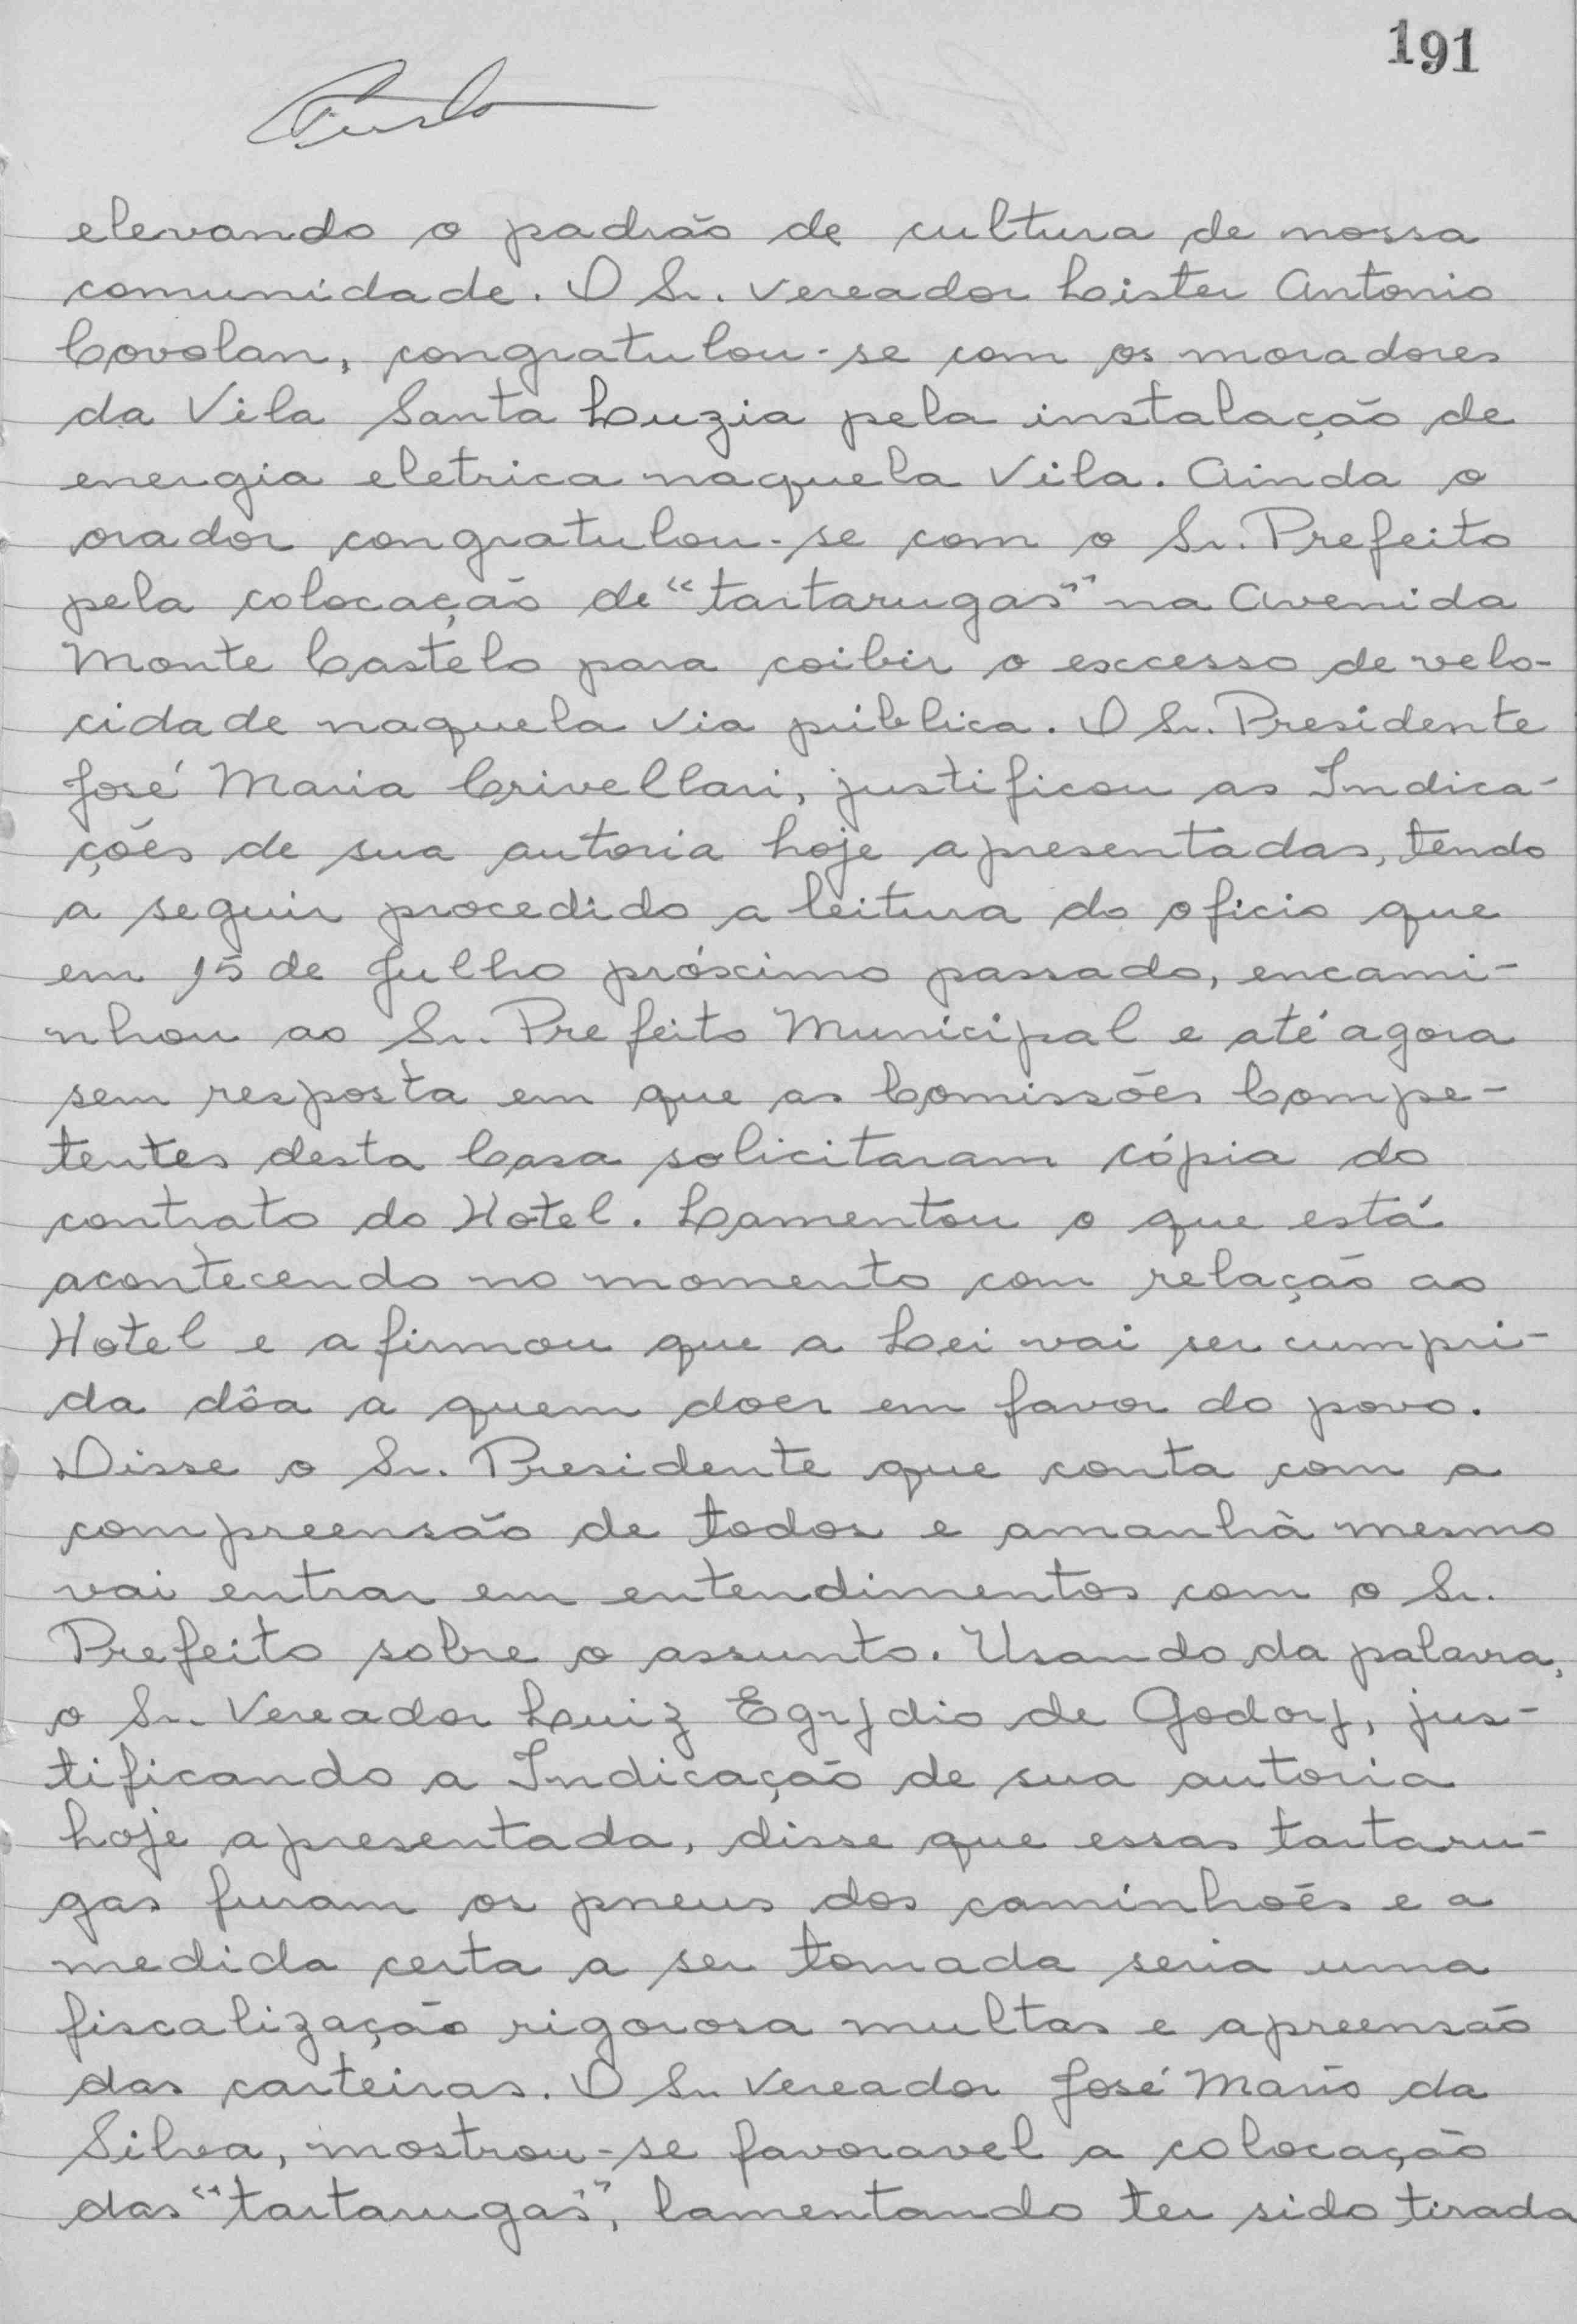 191
elevando o padrão de cultura de nossa
comunidade. O Sr. Vereador Lister Antonio
Covolan, congratulou-se com os moradores
da Vila Santa Luzia pela instalação de
energia eletrica naquela Vila. Ainda o
orador congratulou-se com o Sr. Prefeito
pela colocação de "tartarugas" na Avenida
Monte Castelo para coibir o excesso de velo-
cidade naquela via pública. O Sr. Presidente
José Maria Crivellari, justificou as Indica-
ções de sua autoria hoje apresentadas, tendo
a seguir procedido a leitura do oficio que
em 15 de Julho próximo passado, encami-
nhou ao Sr. Prefeito Municipal e até agora
sem resposta em que as Comissões Compe-
tentes desta Casa solicitaram cópia do
contrato do Hotel. Lamentou o que está
acontecendo no momento com relação ao
Hotel e afirmou que a Lei vai ser cumpri-
da dôa a quem doer em favor do povo.
Disse o Sr. Presidente que conta com a
compreensão de todos e amanhã mesmo
vai entrar em entendimentos com o Sr.
Prefeito sobre o assunto. Usando da palavra,
o Sr. Vereador Luiz Egydio de Godoy, jus-
tificando a Indicação de sua autoria
hoje apresentada, disse que essas tartaru-
gas furam os pneus dos caminhões e a
medida certa a ser tomada seria uma
fiscalização rigorosa multas e apreensão
das carteiras. O Sr. Vereador José Mario da
Silva, mostrou-se favoravel a colocação
das "tartarugas", lamentando ter sido tirada